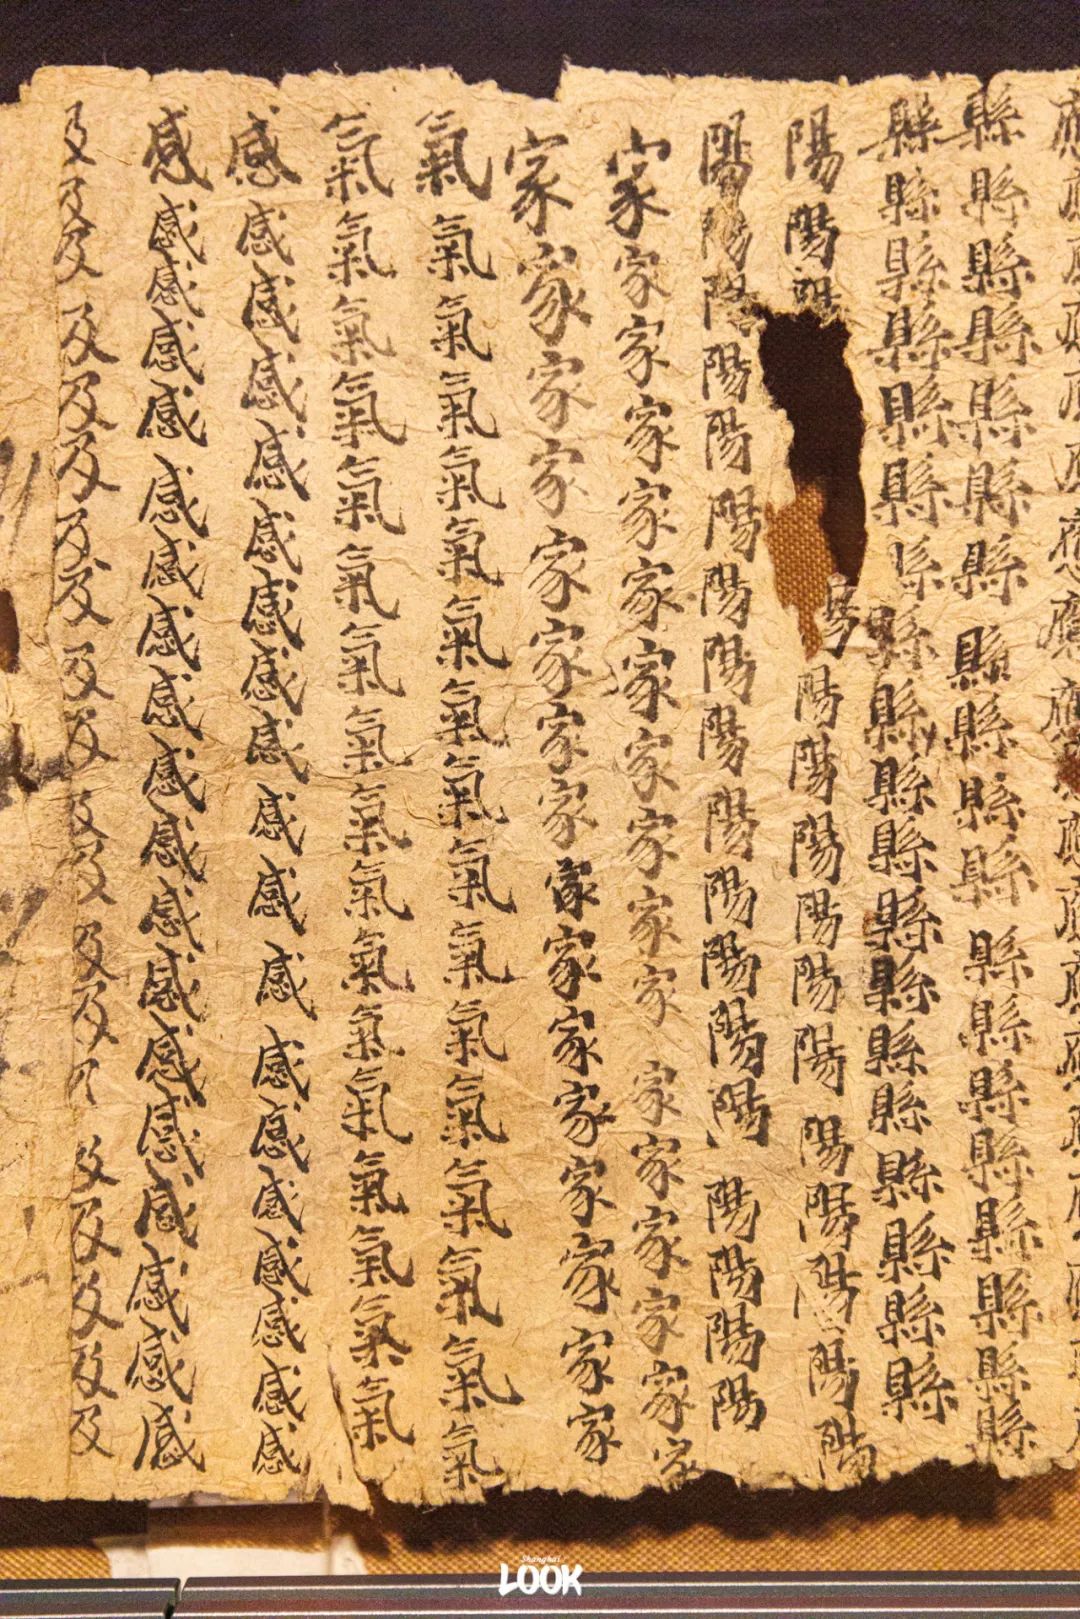 縣縣縣縣縣縣縣縣縣縣縣縣縣縣縣縣縣縣縣
縣縣縣縣縣縣縣縣縣縣縣縣縣縣縣縣縣縣縣
陽陽陽陽陽陽陽陽陽陽陽陽陽陽
陽陽陽陽陽陽陽陽陽陽陽陽陽陽陽陽陽陽
家家家家家家家家家家家家家家家家家
家家家家家家家家家家家家家家家家
氣氣氣氣氣氣氣氣氣氣氣氣氣氣氣氣氣
氣氣氣氣氣氣氣氣氣氣氣氣氣氣氣氣氣
感感感感感感感感感感感感感感感感感感感
感感感感感感感感感感感感感感感感感感感
及及及及及及及及及及及及及及及及及及及
Shanghai
LOOK